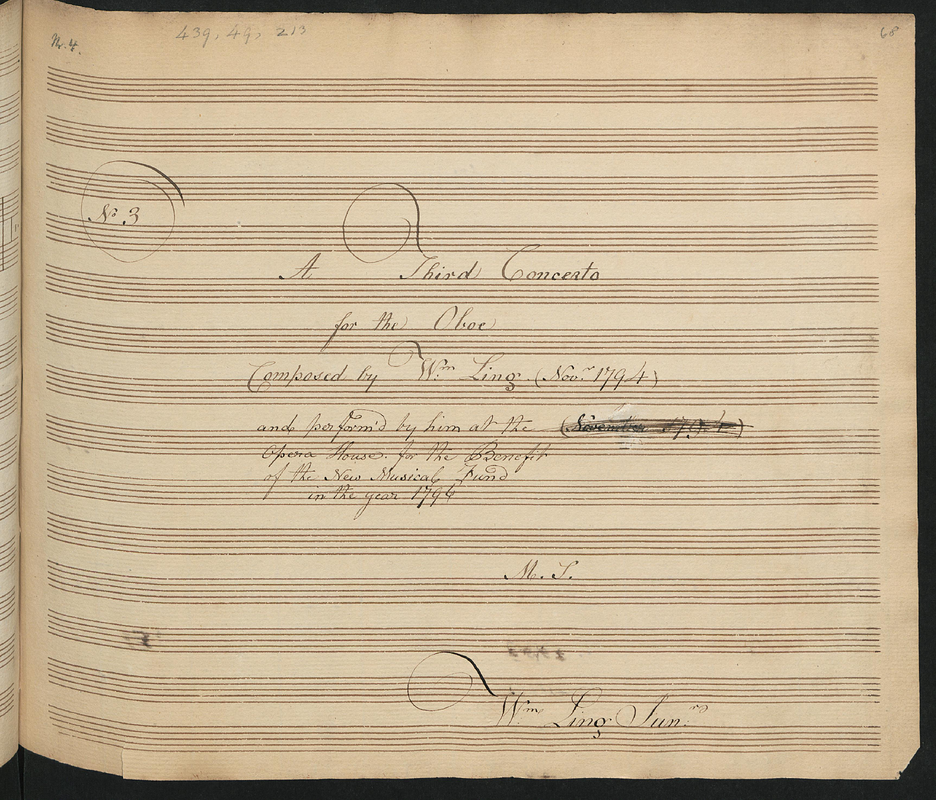 Nr. 4.
439, 49, 213
68
No 3
A Third Concerto
for the Oboe
Composed by Wm Ling. (Novr 1794)
and perform'd by him at the (November 1794)
Opera House. for the Benefit
of the New Musical Fund
in the year 1796
M. S.
Wm Ling